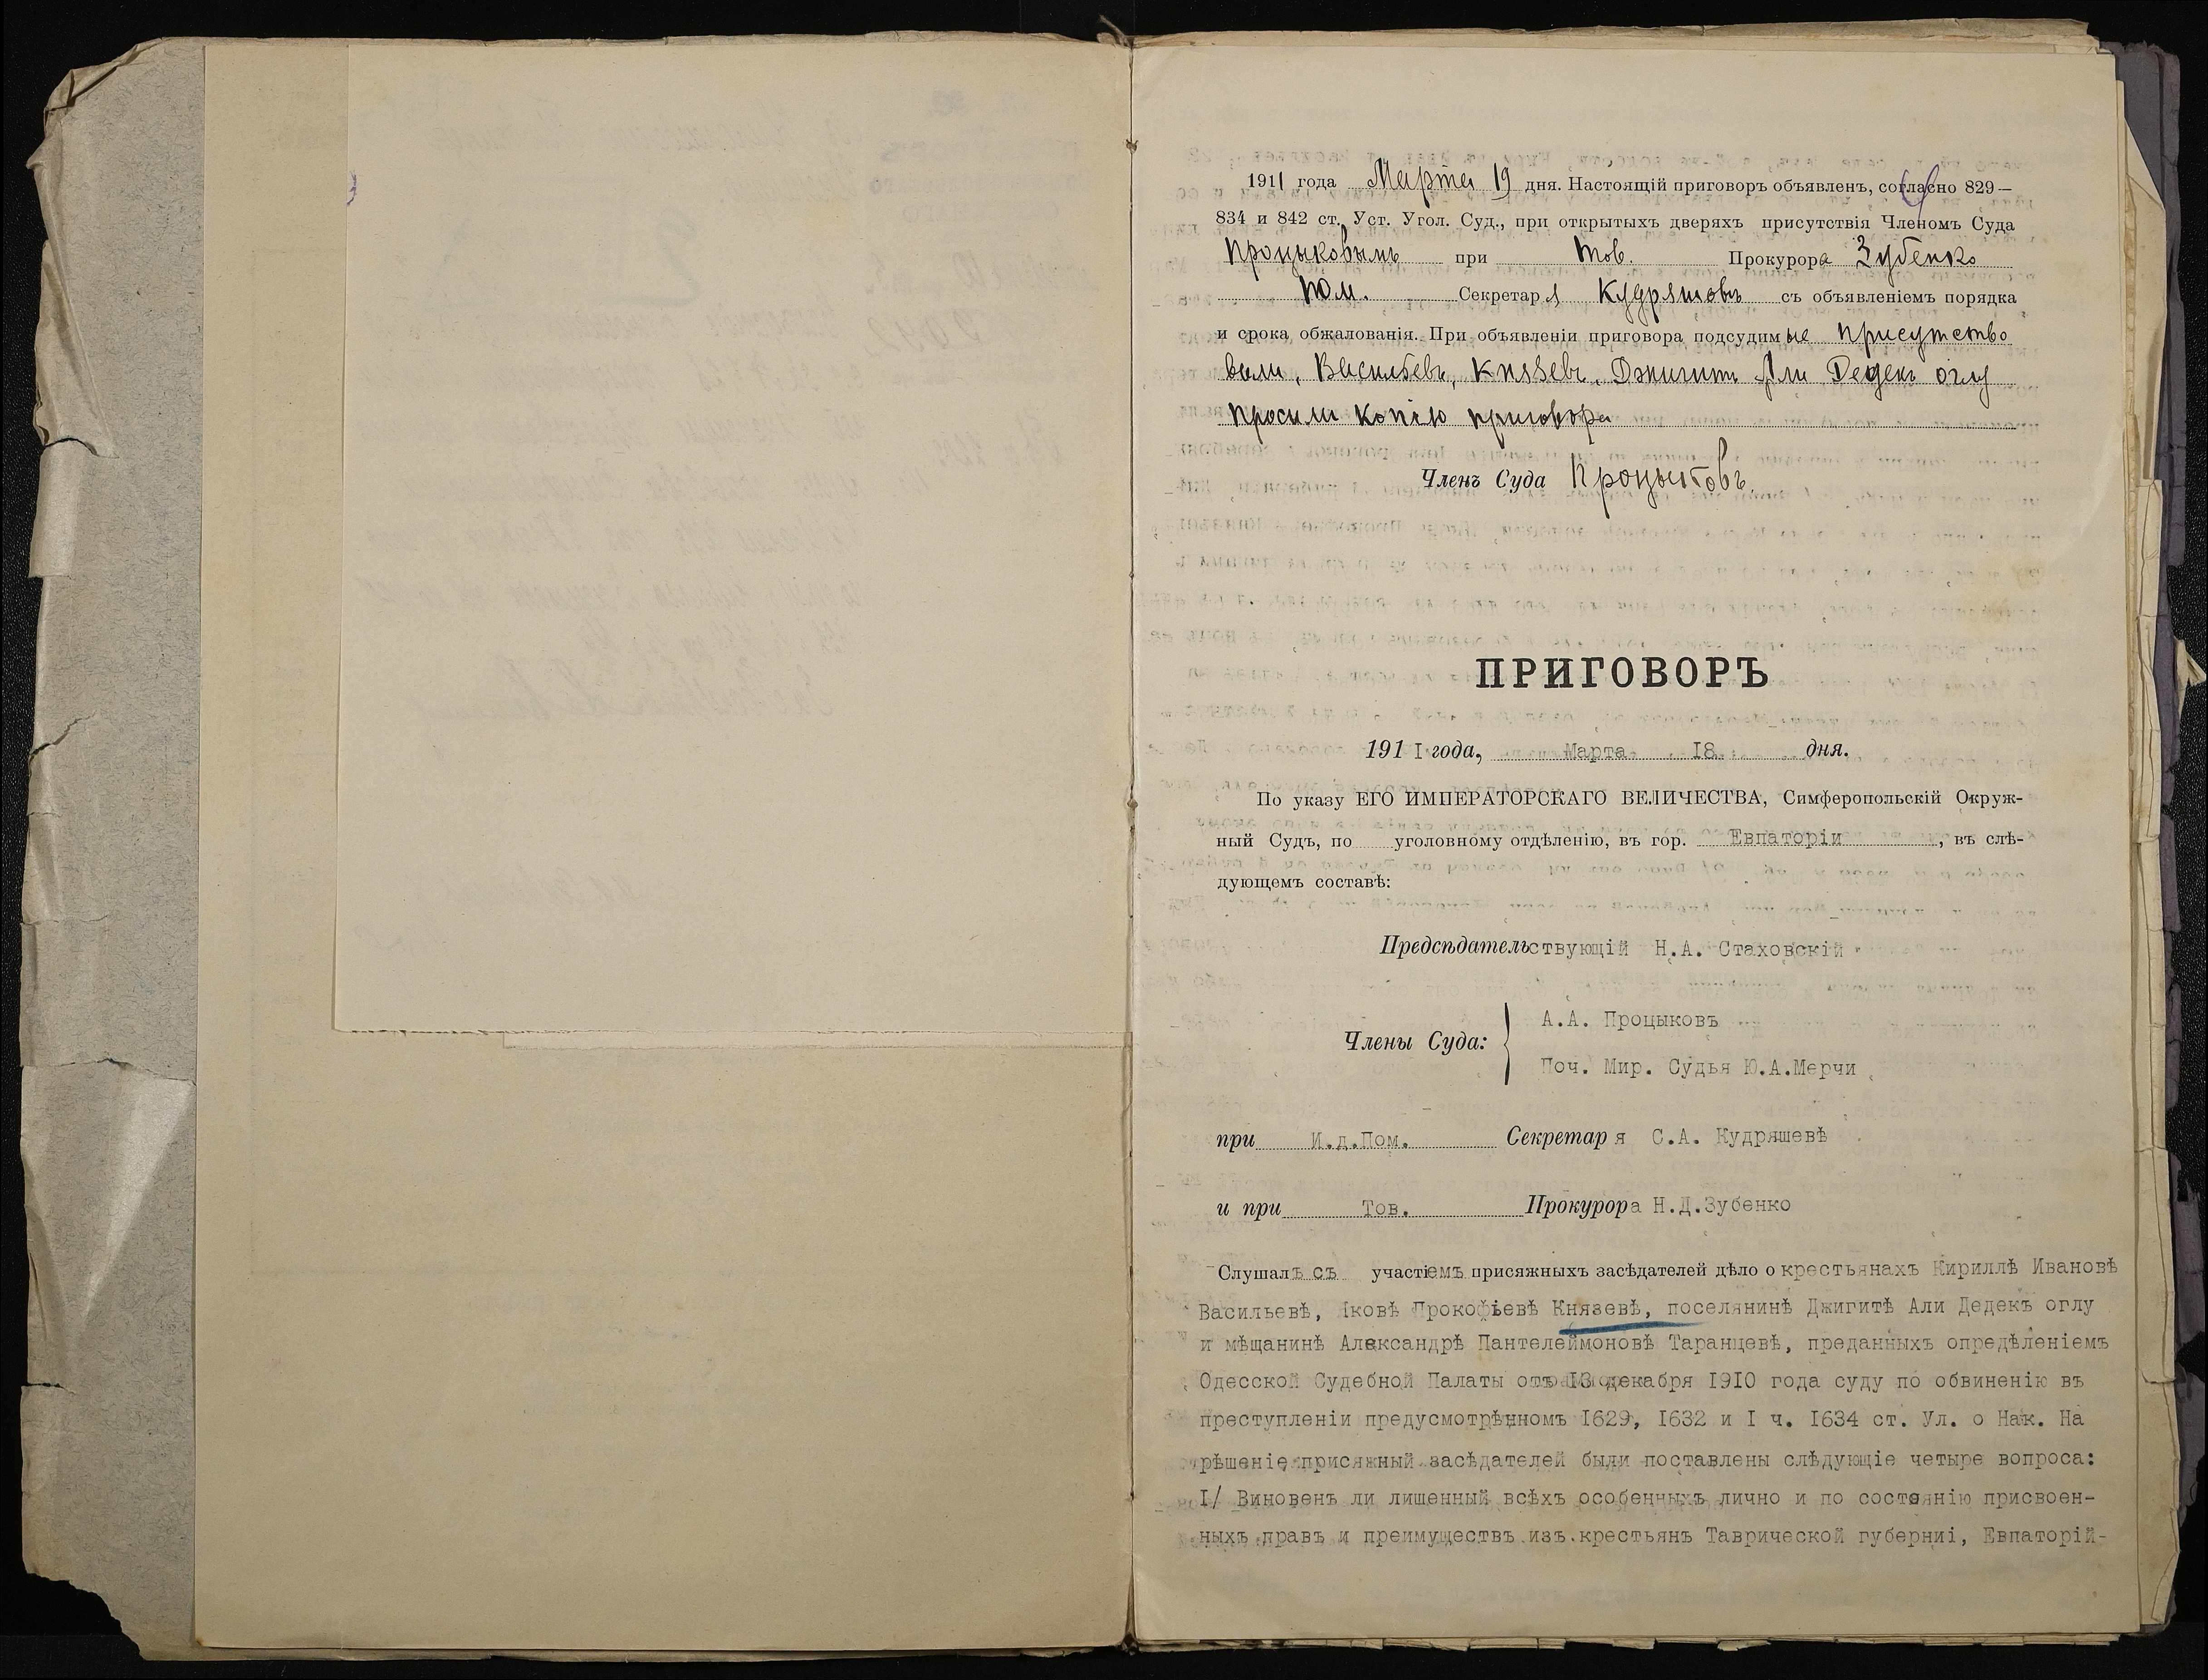 1911 года Марта 19 дня. Настоящій приговоръ объявленъ, согласно 829—
834 и 842 ст. Уст. Угол. Суд., при открытыхъ дверяхъ присутствія Членомъ Суда
Процыковымъ при Тов. Прокурора Зубенко
Пом. Секретаря Кудряшовъ съ объявленіемъ порядка
и срока обжалованія. При объявленіи приговора подсудимые присутство
вали, Васильевъ, Князевъ, Джигитъ Али Дедекъ оглу
просили копію приговора
Членъ Суда Процыковъ.
ПРИГОВОРЪ
191I года, Марта 18 дня.
По указу ЕГО ИМПЕРАТОРСКАГО ВЕЛИЧЕСТВА, Симферопольскій Окруж-
ный Судъ, по уголовному отдѣленію, въ гор. Евпаторіи, въ слѣ-
дующемъ составѣ:
Предсѣдательствующій Н.А. Стаховскій
Члены Суда:
А.А. Процыковъ
Поч. Мир. Судья Ю.А.Мерчи
при И.д.Пом. Секретаря С.А. Кудряшевѣ
и при Тов. Прокурора Н.Д.Зубенко
Слушалъ съ участіемъ присяжныхъ засѣдателей дѣло о крестьянахъ Кириллѣ Ивановѣ
Васильевѣ, Іковѣ Прокофіевѣ Князевѣ, поселянинѣ Джигитѣ Али Дедекъ оглу
и мѣщанинѣ Александрѣ Пантелеймоновѣ Таранцевѣ, преданныхъ опредѣленіемъ
Одесской Судебной Палаты отъ 13 декабря 1910 года суду по обвиненію въ
преступленіи предусмотрѣнномъ 1629, 1632 и I ч. 1634 ст. Ул. о Нак. На
рѣшеніе присяжный засѣдателей были поставлены слѣдующіе четыре вопроса:
I/ Виновенъ ли лишенный всѣхъ особенныхъ лично и по состоянію присвоен-
ныхъ правъ и преимуществъ изъ крестьянъ Таврической губерніи, Евпаторій-